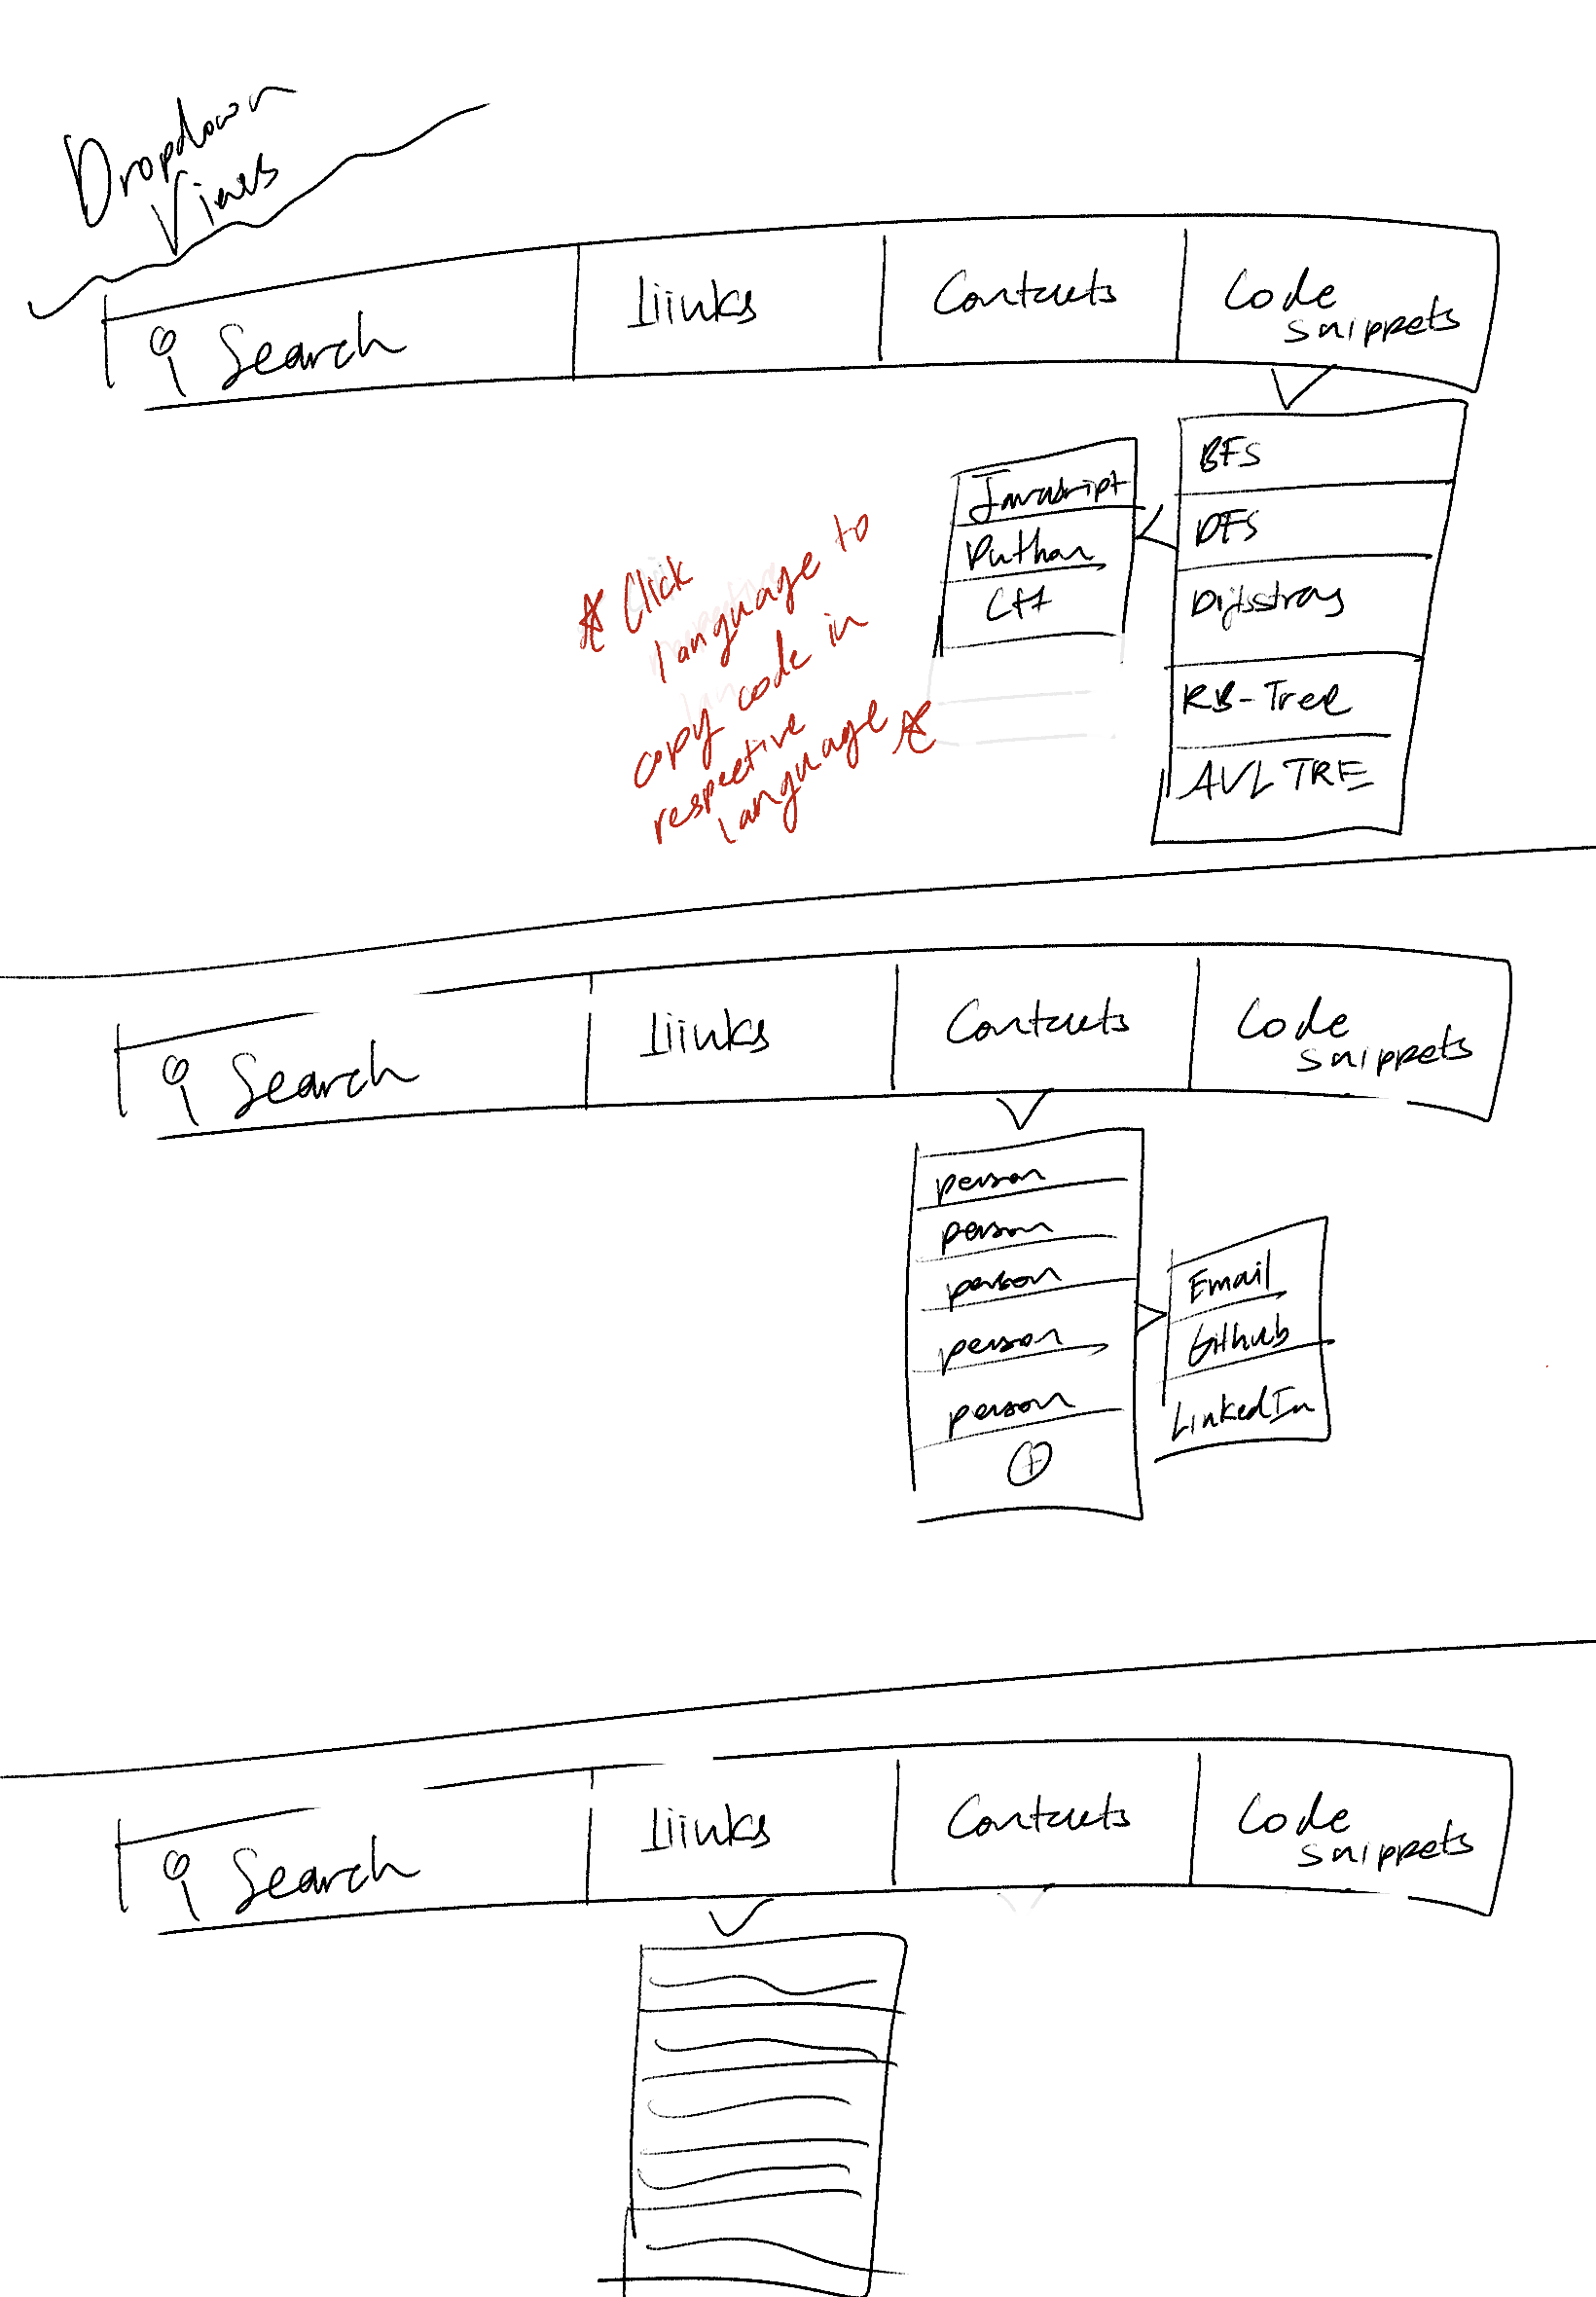 Dropdown
Views
Search
liinks
Contacts
Code
snippets
BFS
DFS
Dijkstras
RB-Tree
AVL TRE
Javascript
Python
C++
Click
language to
copy code in
respective
language
Search
liinks
Contacts
Code
snippets
person
person
person
person
person
+
Email
Github
LinkedIn
Search
liinks
Contacts
Code
snippets